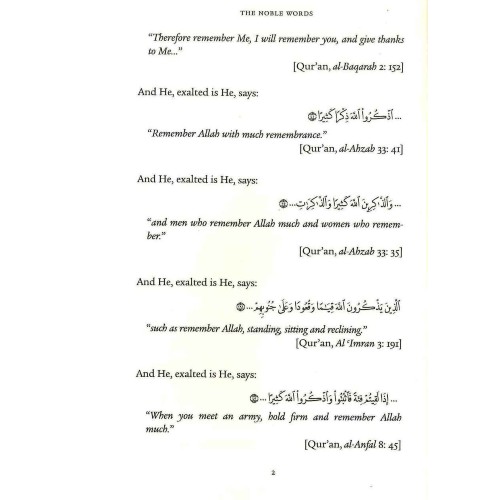 THE NOBLE WORDS
“Therefore remember Me, I will remember you, and give thanks
to Me...”
[Qur’an, al-Baqarah 2: 152]
And He, exalted is He, says:
... اَذْكُرُوا۟ اَللَّهَ ذِكْرًا كَثِيرًا
“Remember Allah with much remembrance.”
[Qur’an, al-Ahzab 33: 41]
And He, exalted is He, says:
... وَالذَّٰكِرِينَ اَللَّهَ كَثِيرًا وَالذَّٰكِرَٰتِ...
“and men who remember Allah much and women who remem-
ber.”
[Qur’an, al-Ahzab 33: 35]
And He, exalted is He, says:
الَّذِينَ يَذْكُرُونَ اَللَّهَ قِيَٰمًا وَقُعُودًا وَعَلَىٰ جُنُوبِهِمْ...
“such as remember Allah, standing, sitting and reclining.”
[Qur’an, Al ‘Imran 3: 191]
And He, exalted is He, says:
... إِذَا لَقِيتُمْ فِئَةً فَاثْبُتُوا۟ وَاذْكُرُوا۟ اَللَّهَ كَثِيرًا...
“When you meet an army, hold firm and remember Allah
much.”
[Qur’an, al-Anfal 8: 45]
2